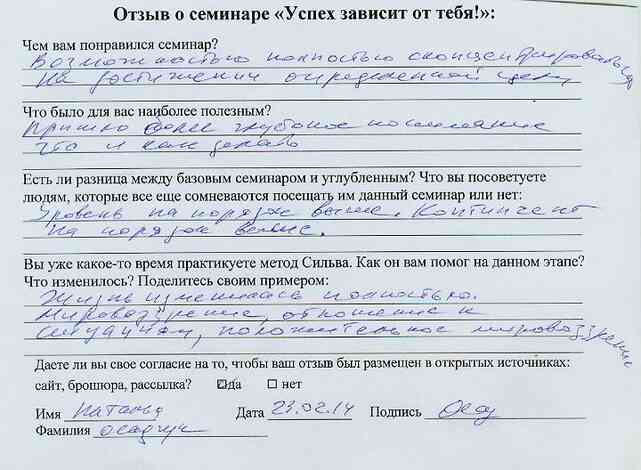 Отзыв о семинаре «Успех зависит от тебя!»:
Чем вам понравился семинар?
Возможностью полностью сконцентрироваться
на достижении определенной цели
Что было для вас наиболее полезным?
Пришло более глубокое понимание
что и как делать
Есть ли разница между базовым семинаром и углубленным? Что вы посоветуете
людям, которые все еще сомневаются посещать им данный семинар или нет:
Уровень на порядок выше. Контингент
на порядок выше.
Вы уже какое-то время практикуете метод Сильва. Как он вам помог на данном этапе?
Что изменилось? Поделитесь своим примером:
Жизнь изменилась полностью.
Мировоззрение, отношение к
ситуациям, положительное мировоззрение
Даете ли вы свое согласие на то, чтобы ваш отзыв был размещен в открытых источниках:
сайт, брошюра, рассылка? да нет
Имя Наталья Дата 23.02.14 Подпись
Фамилия Осадчук